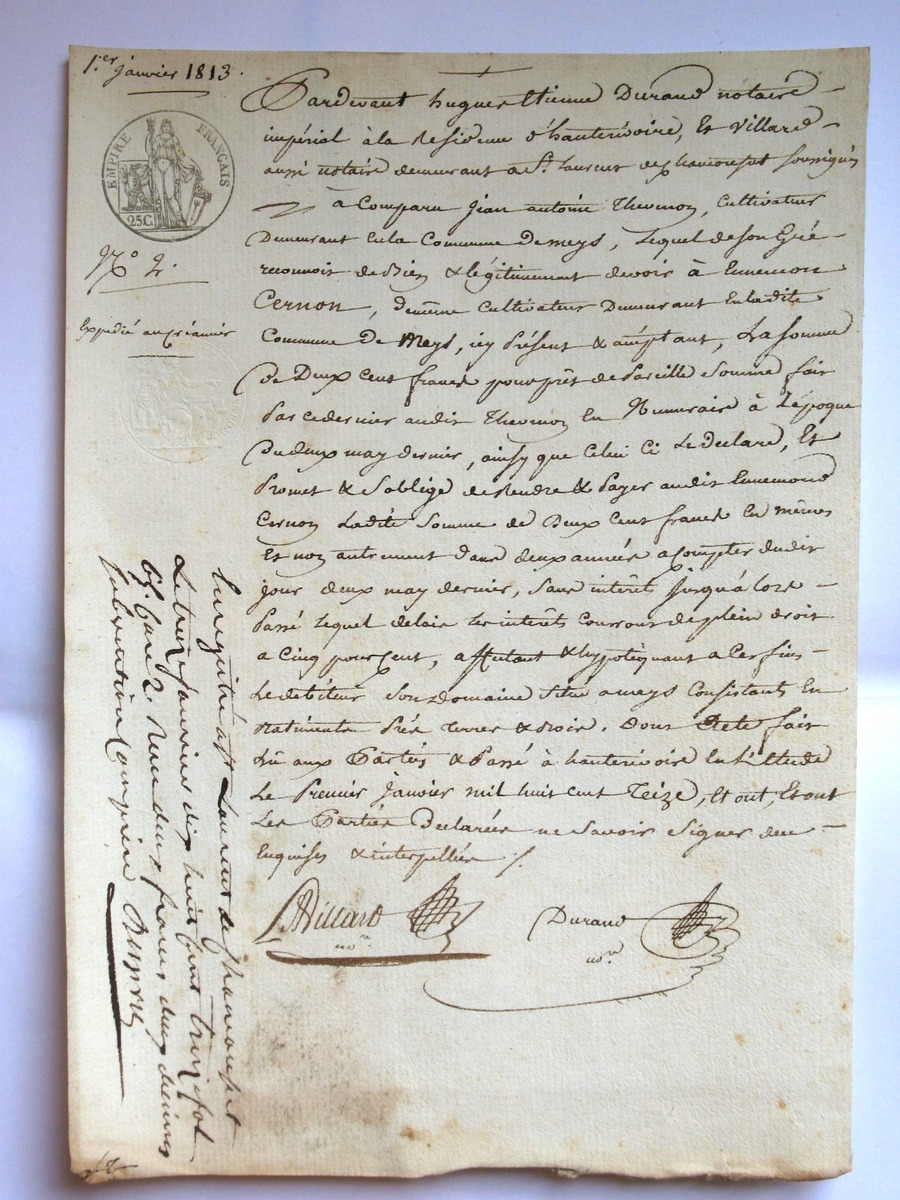 1.er janvier 1813.
EMPIRE FRANÇAIS
25 C.
N.° 2.
Expedié au créancier
Pardevant hugues Etienne Durand notaire
impérial à la Residence d'hauterivoire, Et Villard
aussi notaire demeurant a St. Laurent de chamousset soussignés
à Comparu Jean antoine Thevenon, Cultivateur
Demeurant En la Commune de meys, Lequel de son Gré
reconnoit de Bien & légitimement devoir à Ennemond
Cernon, de même Cultivateur Demeurant En ladite
Commune De Meys, icy Présent & acceptant, La somme
De Deux Cent francs pour prêt de Pareille Somme fait
Par ce dernier audit Thevenon En Numeraire à L'époque
Du deux may dernier, ainsy que Celui Ci Le Declare, Et
Promet & S'oblige de Rendre & Payer audit Ennemond
Cernon Ladite Somme de Deux Cent francs En mêmes
Et non autrement dans deux années a Compter dudit
jour deux may dernier, Sans interêt jusqu'à lors
Passé lequel délais Les interêts Courront de plein droit
a Cinq pour Cent, affectant & hypotéquant a Ces fins
Le debiteur Son Domaine Situé a meys Consistant En
Batiments Prés Terres & Bois. Dont Acte fait
Lû aux Parties & Passé à hauterivoire En L'Etude
Le Premier Janvier mil huit cent Treize, Et ont, Et ont
Les Parties Declarées ne Savoir Signer de ce
Enquises & interpellées ./.
Villard
no.re
Durand
no.re
Enregistré à St Laurent de chamousset
Le treize janvier dix huit cent treize fol
65. Case 2. Recu deux francs deux decimes
Subvention Comprise